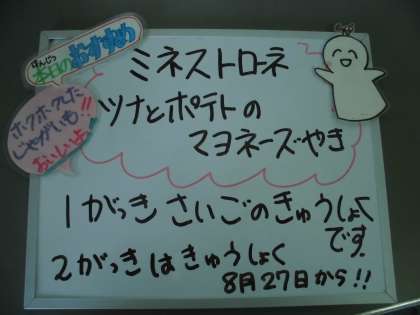 ほんじつ
本日のおすすめ
ミネストローネ
ツナとポテトの
マヨネーズやき
ホクホクした
じゃがいも!!
おいしいよ
1がっき さいごのきゅうしょく
です。
2がっきはきゅうしょく
8月27日から!!